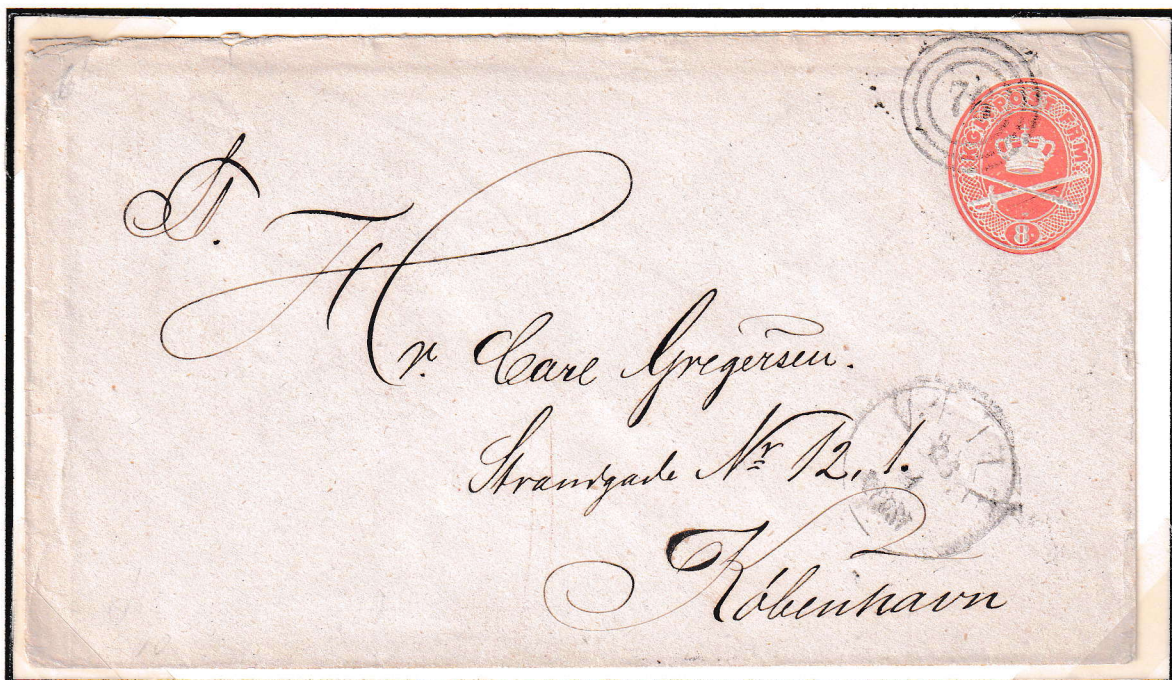 KGL POST FRM
8
St.
Hr. Carl Gregersen.
Strandgade Nr 12, 1.
København